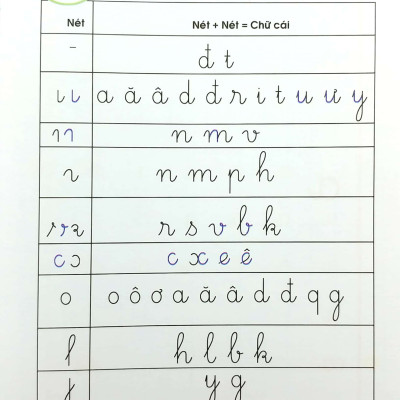 Nét Nét + Nét = Chữ cái
- đ t
a ă â d đ r i t u ư y
n m v
n m p h
r s v b k
c ɔ c x e ê
o o ô ơ a ă â d đ q g
h l b k
y g